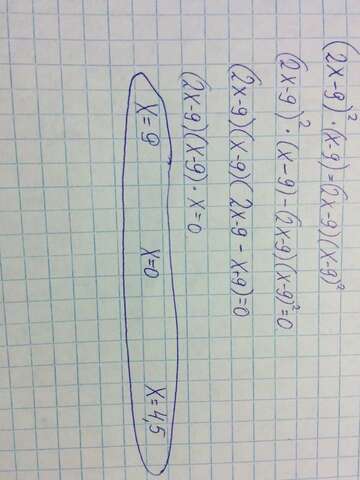 (2x-9)²·(x-9)=(2x-9)(x-9)²
(2x-9)²·(x-9)-(2x-9)(x-9)²=0
(2x-9)(x-9)(2x-9-x+9)=0
(2x-9)(x-9)·x=0
x=9 x=0 x=4,5